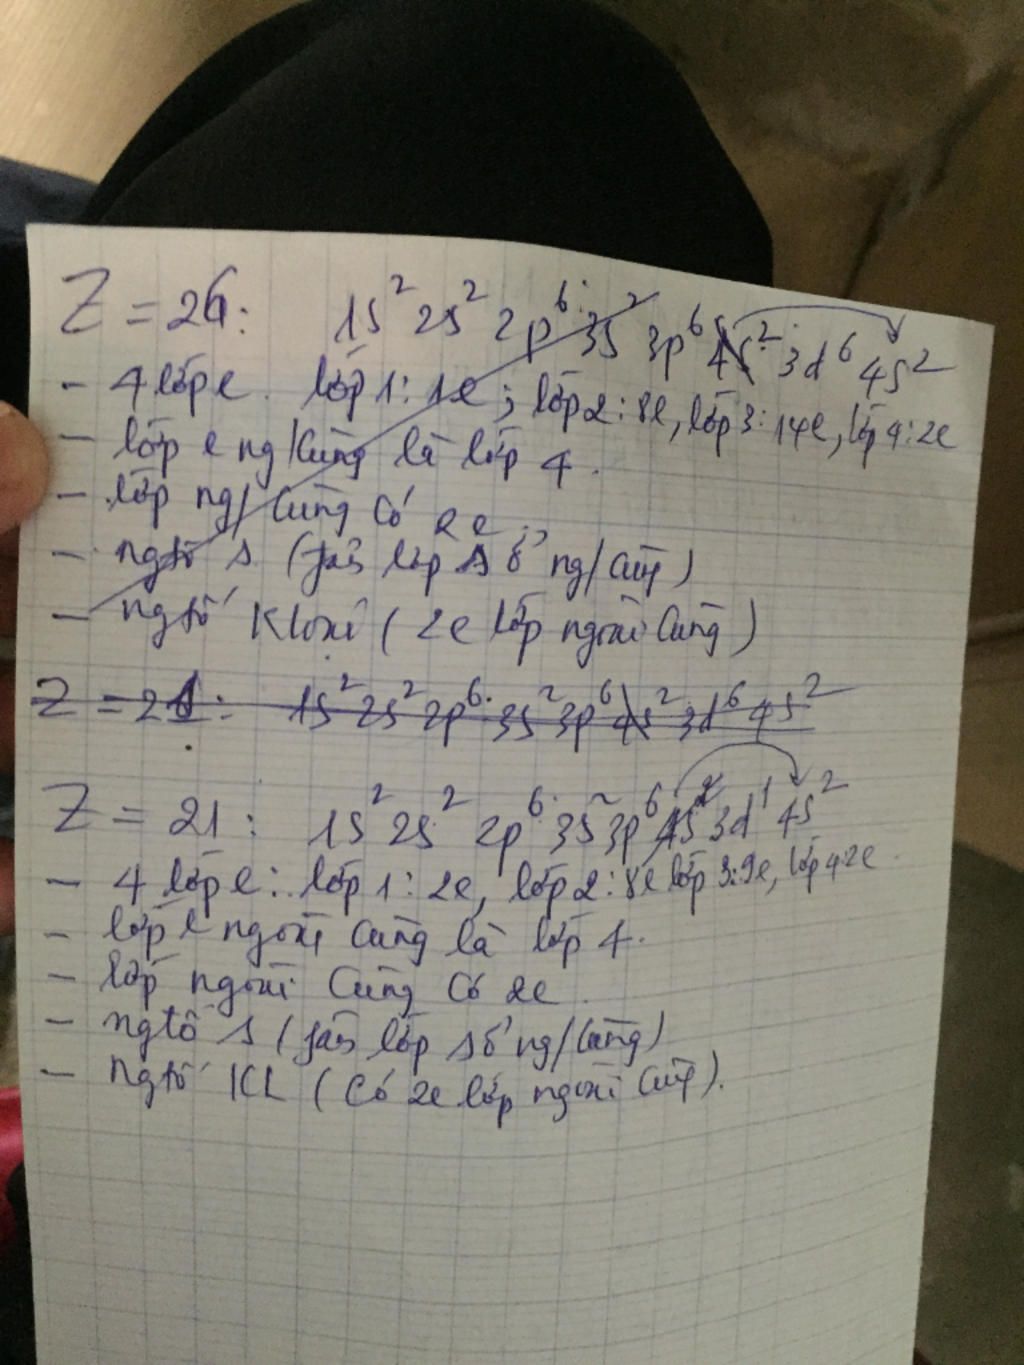 Z = 26: 1s² 2s² 2p⁶ 3s² 3p⁶ 4s² 3d⁶ 4s²
- 4 lớp e. lớp 1: 1e; lớp 2: 8e, lớp 3: 14e, lớp 4: 2e
- lớp e ng/cùng là lớp 4.
- lớp ng/cùng có 2e
- ngtố s (lớp ng/cùng)
- ngtố K loại (2e lớp ngoài cùng)
Z = 21: 1s² 2s² 2p⁶ 3s² 3p⁶ 4s² 3d⁶ 4s²
Z = 21: 1s² 2s² 2p⁶ 3s² 3p⁶ 4s² 3d¹ 4s²
- 4 lớp e: lớp 1: 2e, lớp 2: 8e lớp 3: 9e, lớp 4: 2e.
- lớp e ngoài cùng là lớp 4.
- lớp ngoài cùng có 2e.
- ngtố s (lớp ng/cùng)
- ngtố KL (có 2e lớp ngoài cùng).